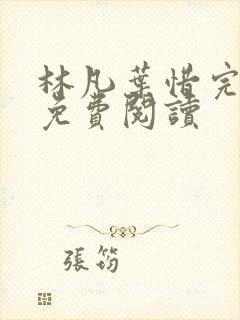 林凡葉惜完
免費閱讀
張筠